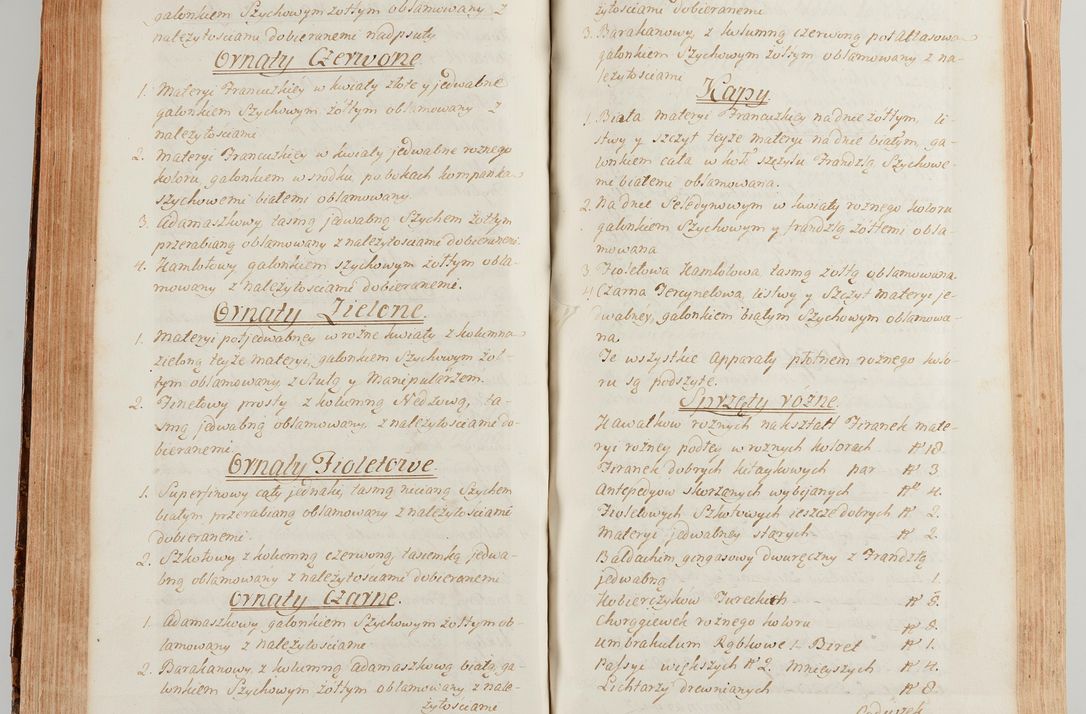 galonkiem Szychowym żołtym obłamowany z
należytościami dobieranemi nadpsuty
Ornaty Czerwone.
1. Materyi Francuzkiey w kwiaty złote y jedwabne
galonkiem Szychowym żołtym obłamowany z
należytościami
2. Materyi Francuzkiey w kwiaty jedwabne rożnego
koloru galonkiem w srodku po bokach kompanką
szychowemi białemi obłamowany.
3. Adamaszkowy tasmą jedwabną Szychem żołtym
przerabianą obłamowany z należytościami dobieranemi
4. Kamlotowy galonkiem szychowym żołtym obła-
mowany z należytościami dobieranemi.
Ornaty Zielone.
1. Materyi połjedwabney w rożne kwiaty z kolumną
zieloną teyże materyi, galonkiem Szychowym żoł-
tym obłamowany z Stułą y Manipularzem.
2. Finetowy prosty z kolumną ta-
smą jedwabną obłamowany, z należytościami do-
bieranemi
Ornaty Fioletowe.
1. Superfinowy cały jednaki tasmą nicianą Szychem
białym przerabianą obłamowany z należytościami
dobieranemi.
2. Szkotowy z kolumną czerwoną, tasiemką jedwa-
bną obłamowany z należytościami dobieranemi
Ornaty Czarne.
1. Adamaszkowy galonkiem Szychowym żołtym ob-
łamowany z należytościami
2. Barakanowy, z kolumną adamaszkową białą, ga-
lonkiem Szychowym żołtym obłamowany z nale-
żytościami
żytościami dobieranemi
3. Barakanowy, z kolumną czerwoną połatłasową
galonkiem Szychowym żołtym obłamowany z na-
leżytościami
Kapy
1. Biała materyi Francuzkiey na dnie żołtym, li-
stwy y szczyt teyże materyi na dnie białym, ga-
lonkiem cała w koło szczytu Frandzlą Szychowe-
mi białemi obłamowana.
2. Na dnie Seledynowym w kwiaty rożnego koloru
galonkiem Szychowym y frandzlą żołtemi obła-
mowana
3. Fioletowa Kamlotowa tasmą żołtą obłamowana.
4. Czarna Tercynelowa, listwy y Szczyt materyi je-
dwabney, galonkiem białym Szychowym obłamowa-
na,
Te wszystkie Apparaty płotnem rożnego kolo-
ru są podszyte.
Sprzęty rożne.
Kawałkow rożnych na kształt Firanek mate-
ryi rożney podłey w rożnych kolorach N 18
Firanek dobrych kitaykowych par N 3
Antepedyow skorzanych wybijanych N 4.
Fioletowych Szkotowych ieszcze dobrych N 2.
Materyi jedwabney starych N 2.
Baldachim gingasowy dwuręczny z Frandzlą
jedwabną 1.
Kobierczykow Tureckich N 3.
Chorągiewek rożnego koloru N 8.
Umbrakulum Rąbkowe 1 Biret N 1.
Passyi większych N 2. mnieyszych N 4.
Lichtarzy drewnianych N 8